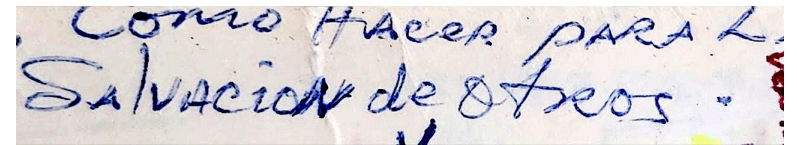 . Como HACER PARA L
SALVACION de otros.